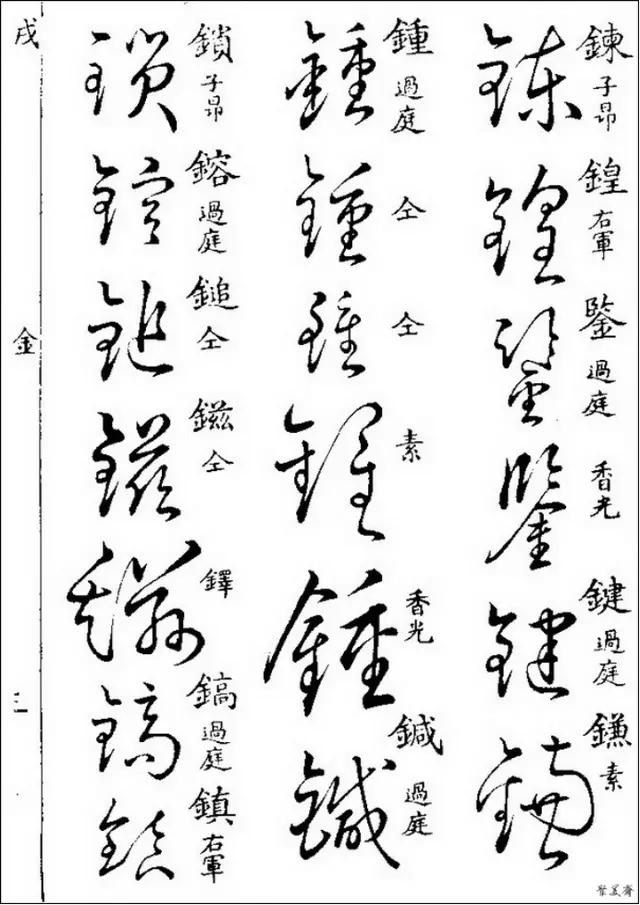 鍊 子昂
鍠 右軍
鍳 過庭
香光
鍵 過庭
鎌 素
鍾 過庭
仝
仝
素
香光
鍼 過庭
鎖 子昂
鎔 過庭
鎚 仝
鎡 仝
鐸
鎬 過庭
鎮 右軍
戌
金
三